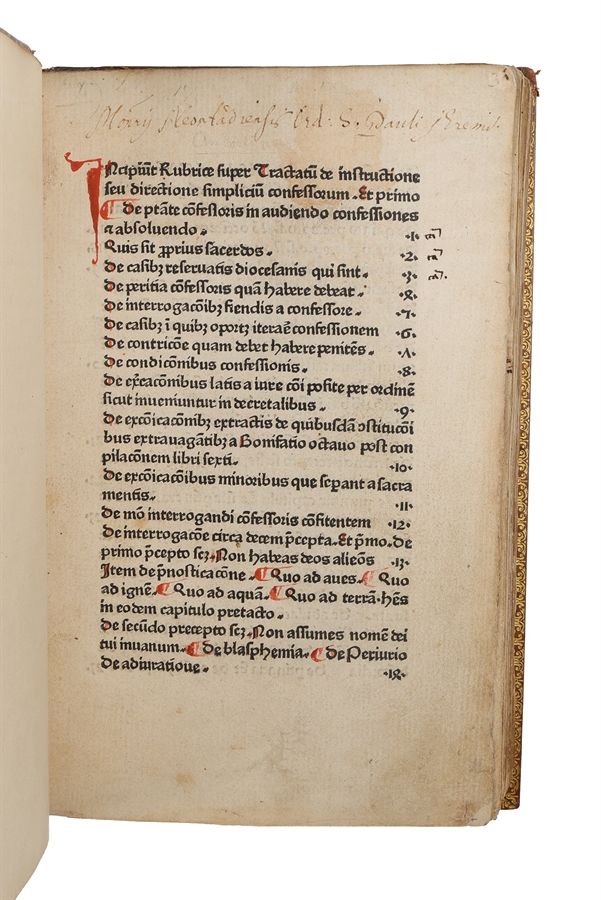 Neostadiensis Ord: S. Pauli Eremit.
3
INcipiũt Rubrice super Tractatũ de instructione
seu directione simpliciũ confessorum. Et primo
¶ de ptãte cõfessoris in audiendo confessiones
⁊ absoluendo. ·1·
Quis sit ꝓprius sacerdos. ·2·
de casibꝫ reseruatis diocesanis qui sint. ·3·
de peritia cõfessoris quã habere debeat. ·ꝝ·
de interrogacõibꝫ fiendis a confessore.
de casibꝫ ĩ quibꝫ oportꝫ iteraẽ confessionem ·6·
de contricõe quam debet habere penitẽs. ·ꓥ·
de condicõnibus confessionis. ·8·
de exc̃acõnibus latis a iure cõi posite per ordinẽ
sicut inueniuntur in decretalibus. ·9·
de excõicacõnibꝫ extractis de quibusdã ɔstitucõi
bus extrauagãtibꝫ a Bonifatio octauo post con
pilacõnem libri sexti. ·10·
de excõicacõibus minoribus que seꝑant a sacra
mentis. ·11·
de mõ interrogandi cõfessoris cõfitentem ·12·
de interrogacõe circa decem p̃cepta. Et p̃mo. de
primo p̃cepto scꝫ. Non habeas deos alieños ·13·
Item de p̃nosticacõne. ¶ Quo ad aues. ¶ Quo
ad ignẽ. ¶ Quo ad aquã. ¶ Quo ad terrã. hẽs
in eodem capitulo pretacto.
de secũdo precepto scꝫ. Non assumes nomẽ dei
tui inuanum. ¶ de blasphemia. ¶ de Periurio
de adiuratioue. ·1ꝝ·